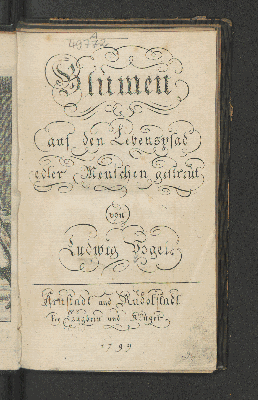 49772
Blumen
auf den Lebenspfad
edler Menschen gestreut
von
Ludwig Vogel.
Arnstadt und Rudolstadt
bey Langbein und Klüger.
1799